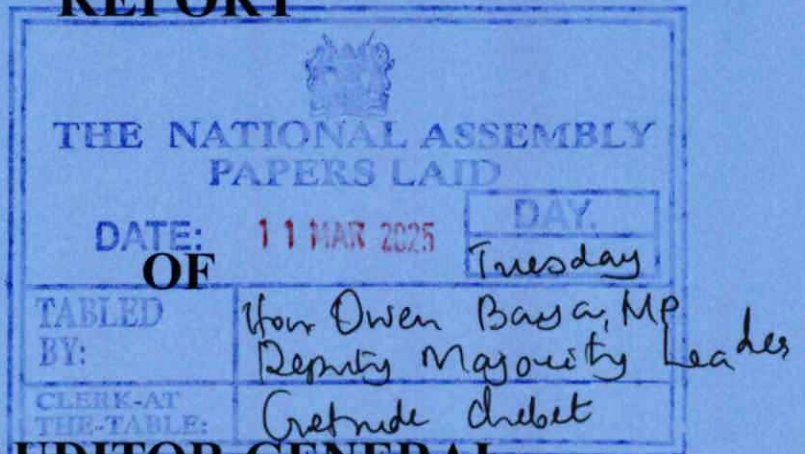 REPORT
THE NATIONAL ASSEMBLY
PAPERS LAID
DATE: 11 MAR 2025 DAY.
Tuesday
OF
TABLED BY: Hon Owen Baya, MP
Deputy Majority Leader
CLERK-AT THE-TABLE: Gertrude Chebet
UDITOR-GENERAL